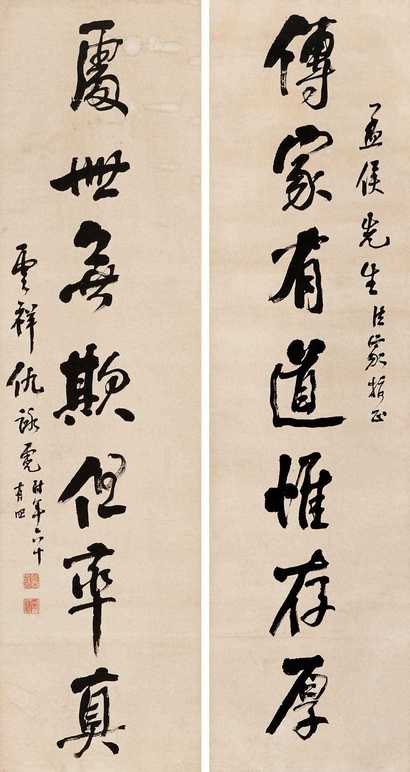 傳家有道惟存厚
孟侯先生法家指正
處世無欺但率真
雲祥仇詠霓時年六十
有四